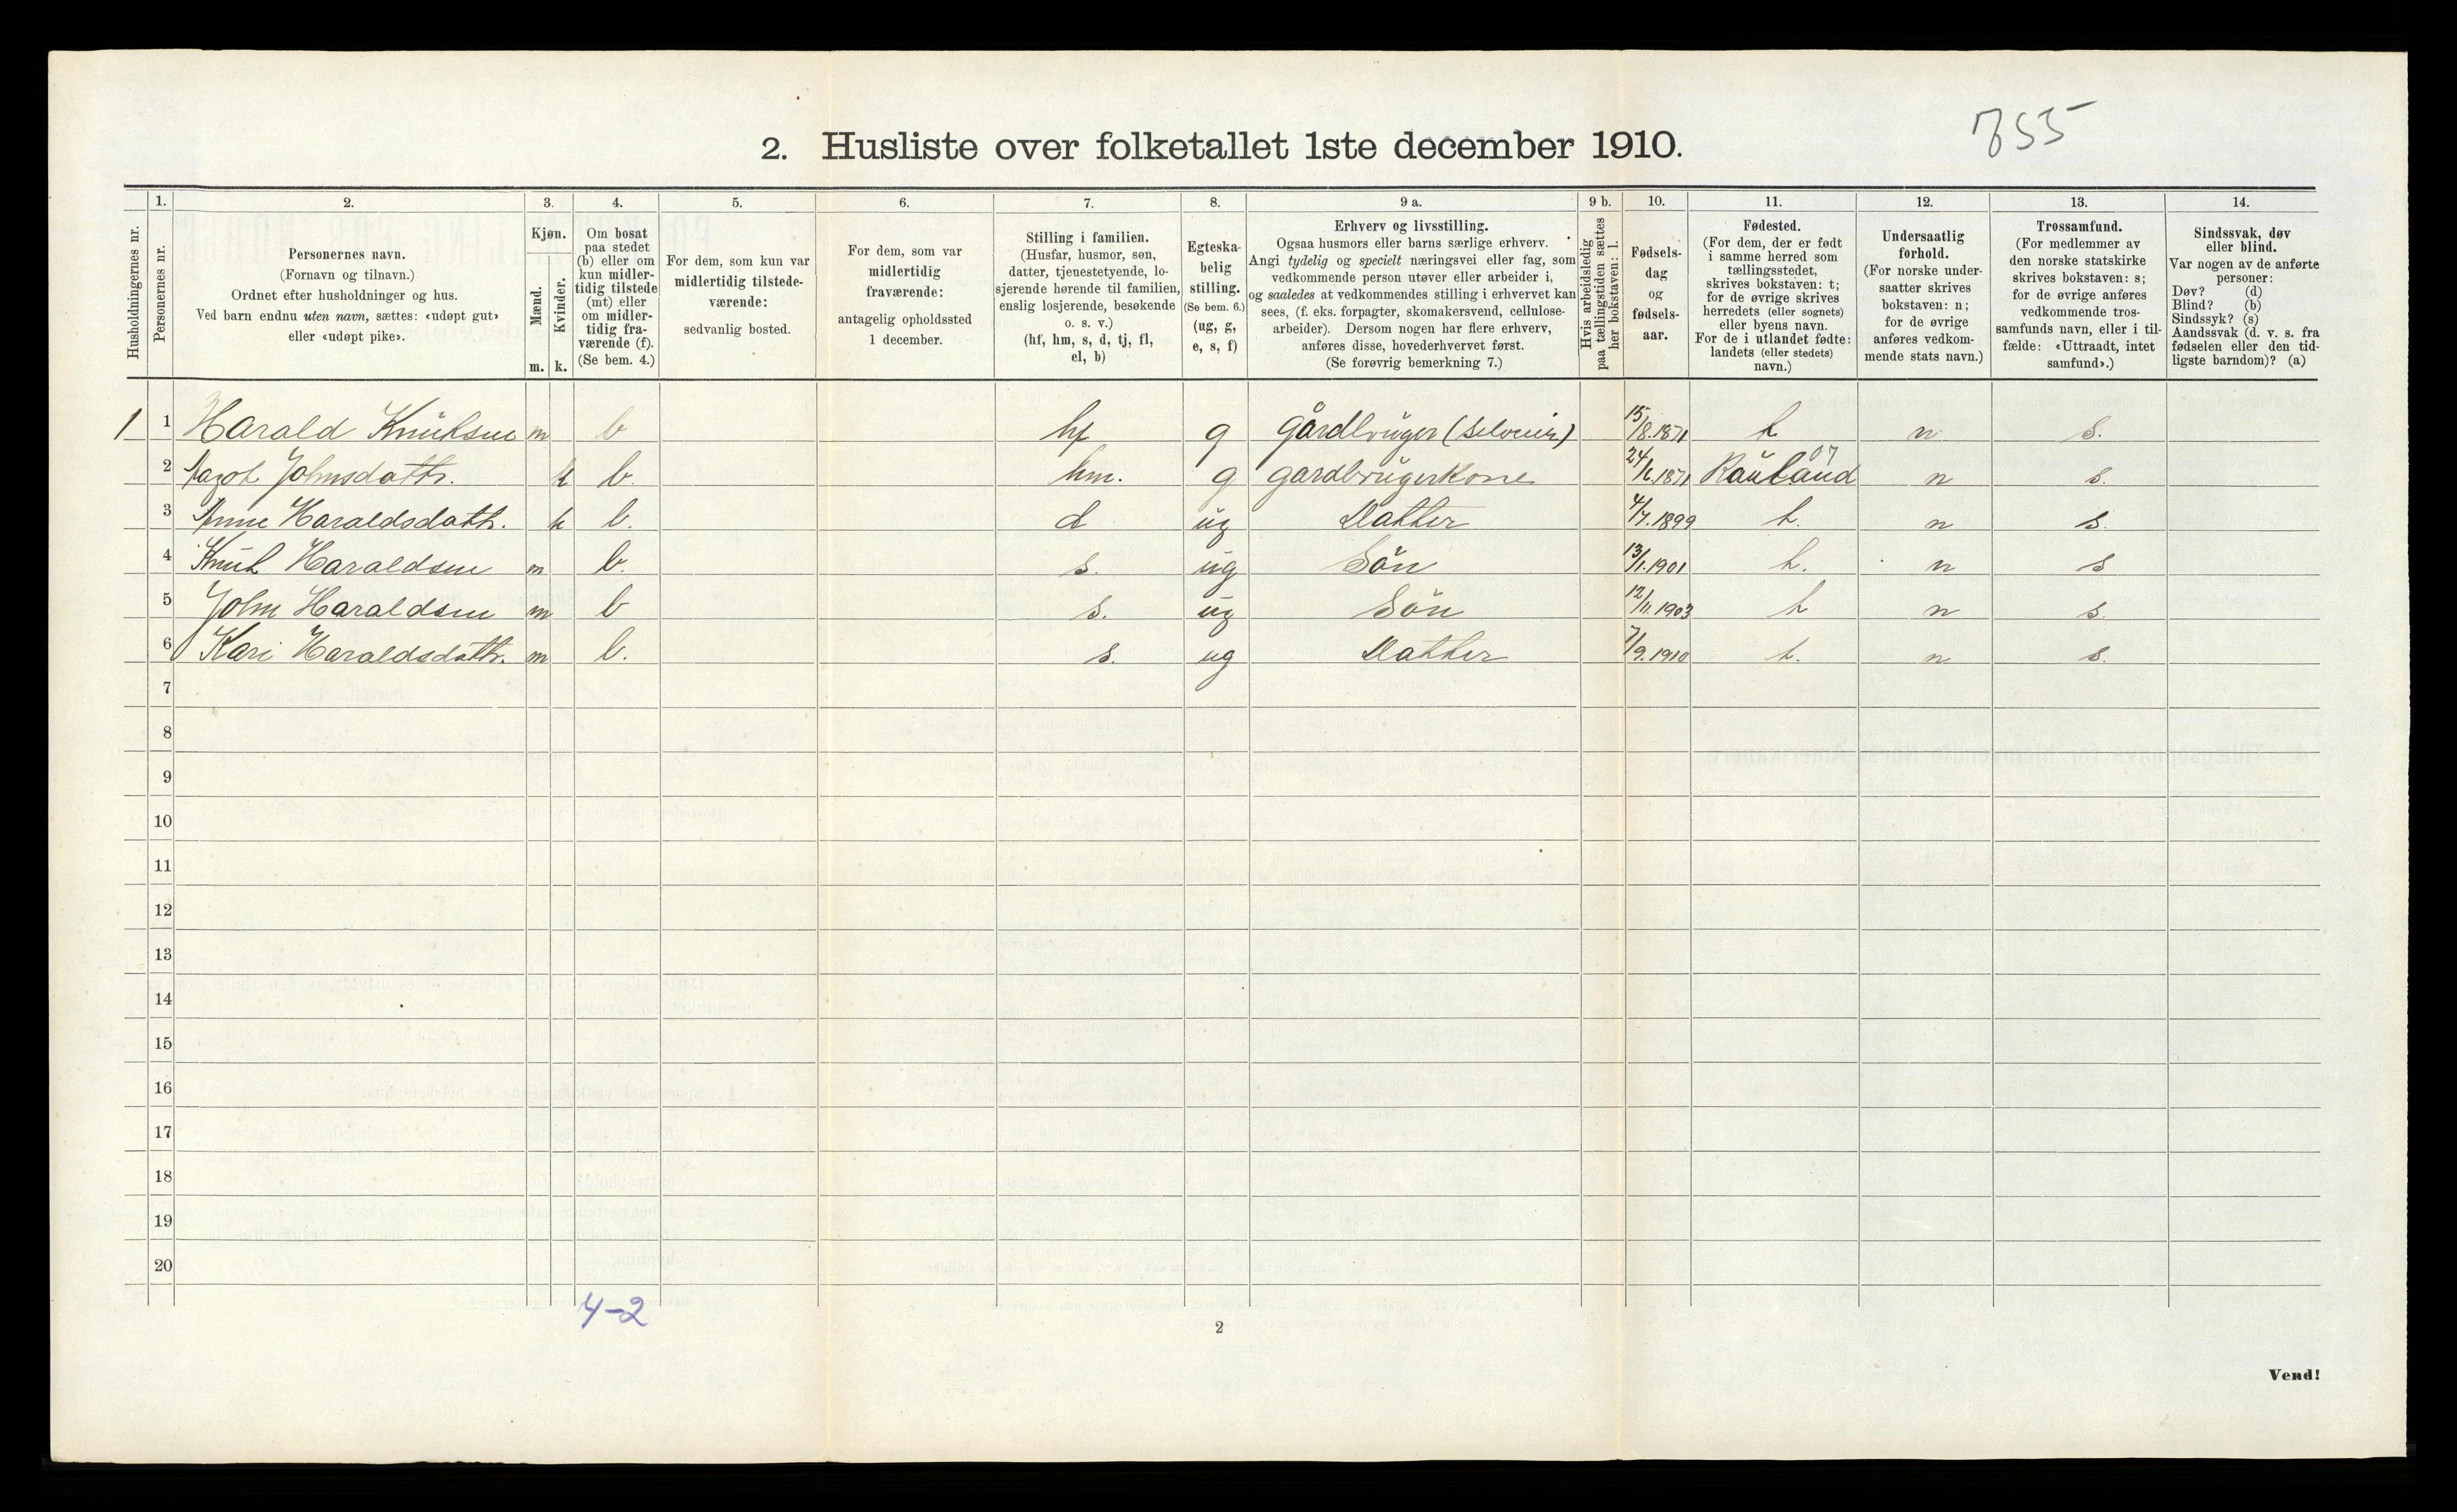 855
2. Husliste over folketallet 1ste december 1910.
Husholdningernes nr.
1.
Personernes nr.
2.
Personernes navn.
(Fornavn og tilnavn.)
Ordnet efter husholdninger og hus.
Ved barn endnu uten navn, sættes: «udøpt gut»
eller «udøpt pike».
3.
Kjøn.
Mænd.
Kvinder.
m. k.
4.
Om bosat
paa stedet
(b) eller om
kun midler-
tidig tilstede
(mt) eller
om midler-
tidig fra-
værende (f).
(Se bem. 4.)
5.
For dem, som kun var
midlertidig tilstede-
værende:
sedvanlig bosted.
6.
For dem, som var
midlertidig
fraværende:
antagelig opholdssted
1 december.
7.
Stilling i familien.
(Husfar, husmor, søn,
datter, tjenestetyende, lo-
sjerende hørende til familien,
enslig losjerende, besøkende
o. s. v.)
(hf, hm, s, d, tj, fl,
el, b)
8.
Egteska-
belig
stilling.
(Se bem. 6.)
(ug, g,
e, s, f)
9 a.
Erhverv og livsstilling.
Ogsaa husmors eller barns særlige erhverv.
Angi tydelig og specielt næringsvei eller fag, som
vedkommende person utøver eller arbeider i,
og saaledes at vedkommendes stilling i erhvervet kan
sees, (f. eks. forpagter, skomakersvend, cellulose-
arbeider). Dersom nogen har flere erhverv,
anføres disse, hovederhvervet først.
(Se forøvrig bemerkning 7.)
9 b.
Hvis arbeidsledig
paa tællingstiden sættes
her bokstaven: l.
10.
Fødsels-
dag
og
fødsels-
aar.
11.
Fødested.
(For dem, der er født
i samme herred som
tællingsstedet,
skrives bokstaven: t;
for de øvrige skrives
herredets (eller sognets)
eller byens navn.
For de i utlandet fødte:
landets (eller stedets)
navn.)
12.
Undersaatlig
forhold.
(For norske under-
saatter skrives
bokstaven: n;
for de øvrige
anføres vedkom-
mende stats navn.)
13.
Trossamfund.
(For medlemmer av
den norske statskirke
skrives bokstaven: s;
for de øvrige anføres
vedkommende tros-
samfunds navn, eller i til-
fælde: «Uttraadt, intet
samfund».)
14.
Sindssvak, døv
eller blind.
Var nogen av de anførte
personer:
Døv? (d)
Blind? (b)
Sindssyk? (s)
Aandssvak (d. v. s. fra
fødselen eller den tid-
ligste barndom)? (a)
1 1 Harald Knutsen m b hf g gårdbruger (Selveier) 15/8.1871 t n s.
2 Johnsdatt. k b. hm. g gardbrugerkone 1871 Rauland 07 n s.
3 Anne Haraldsdatt. k b. d ug Datter 4/7.1899 t. n s.
4 Knut Haraldsen m b. s. ug Søn 13/1.1901 t. n s
5 John Haraldsen m b s. ug Søn 12/11.1903 t n s.
6 Kari Haraldsdatt. m b. s. ug Datter 7/9.1910 t. n s.
7
8
9
10
11
12
13
14
15
16
17
18
19
20
4-2
2
Vend!